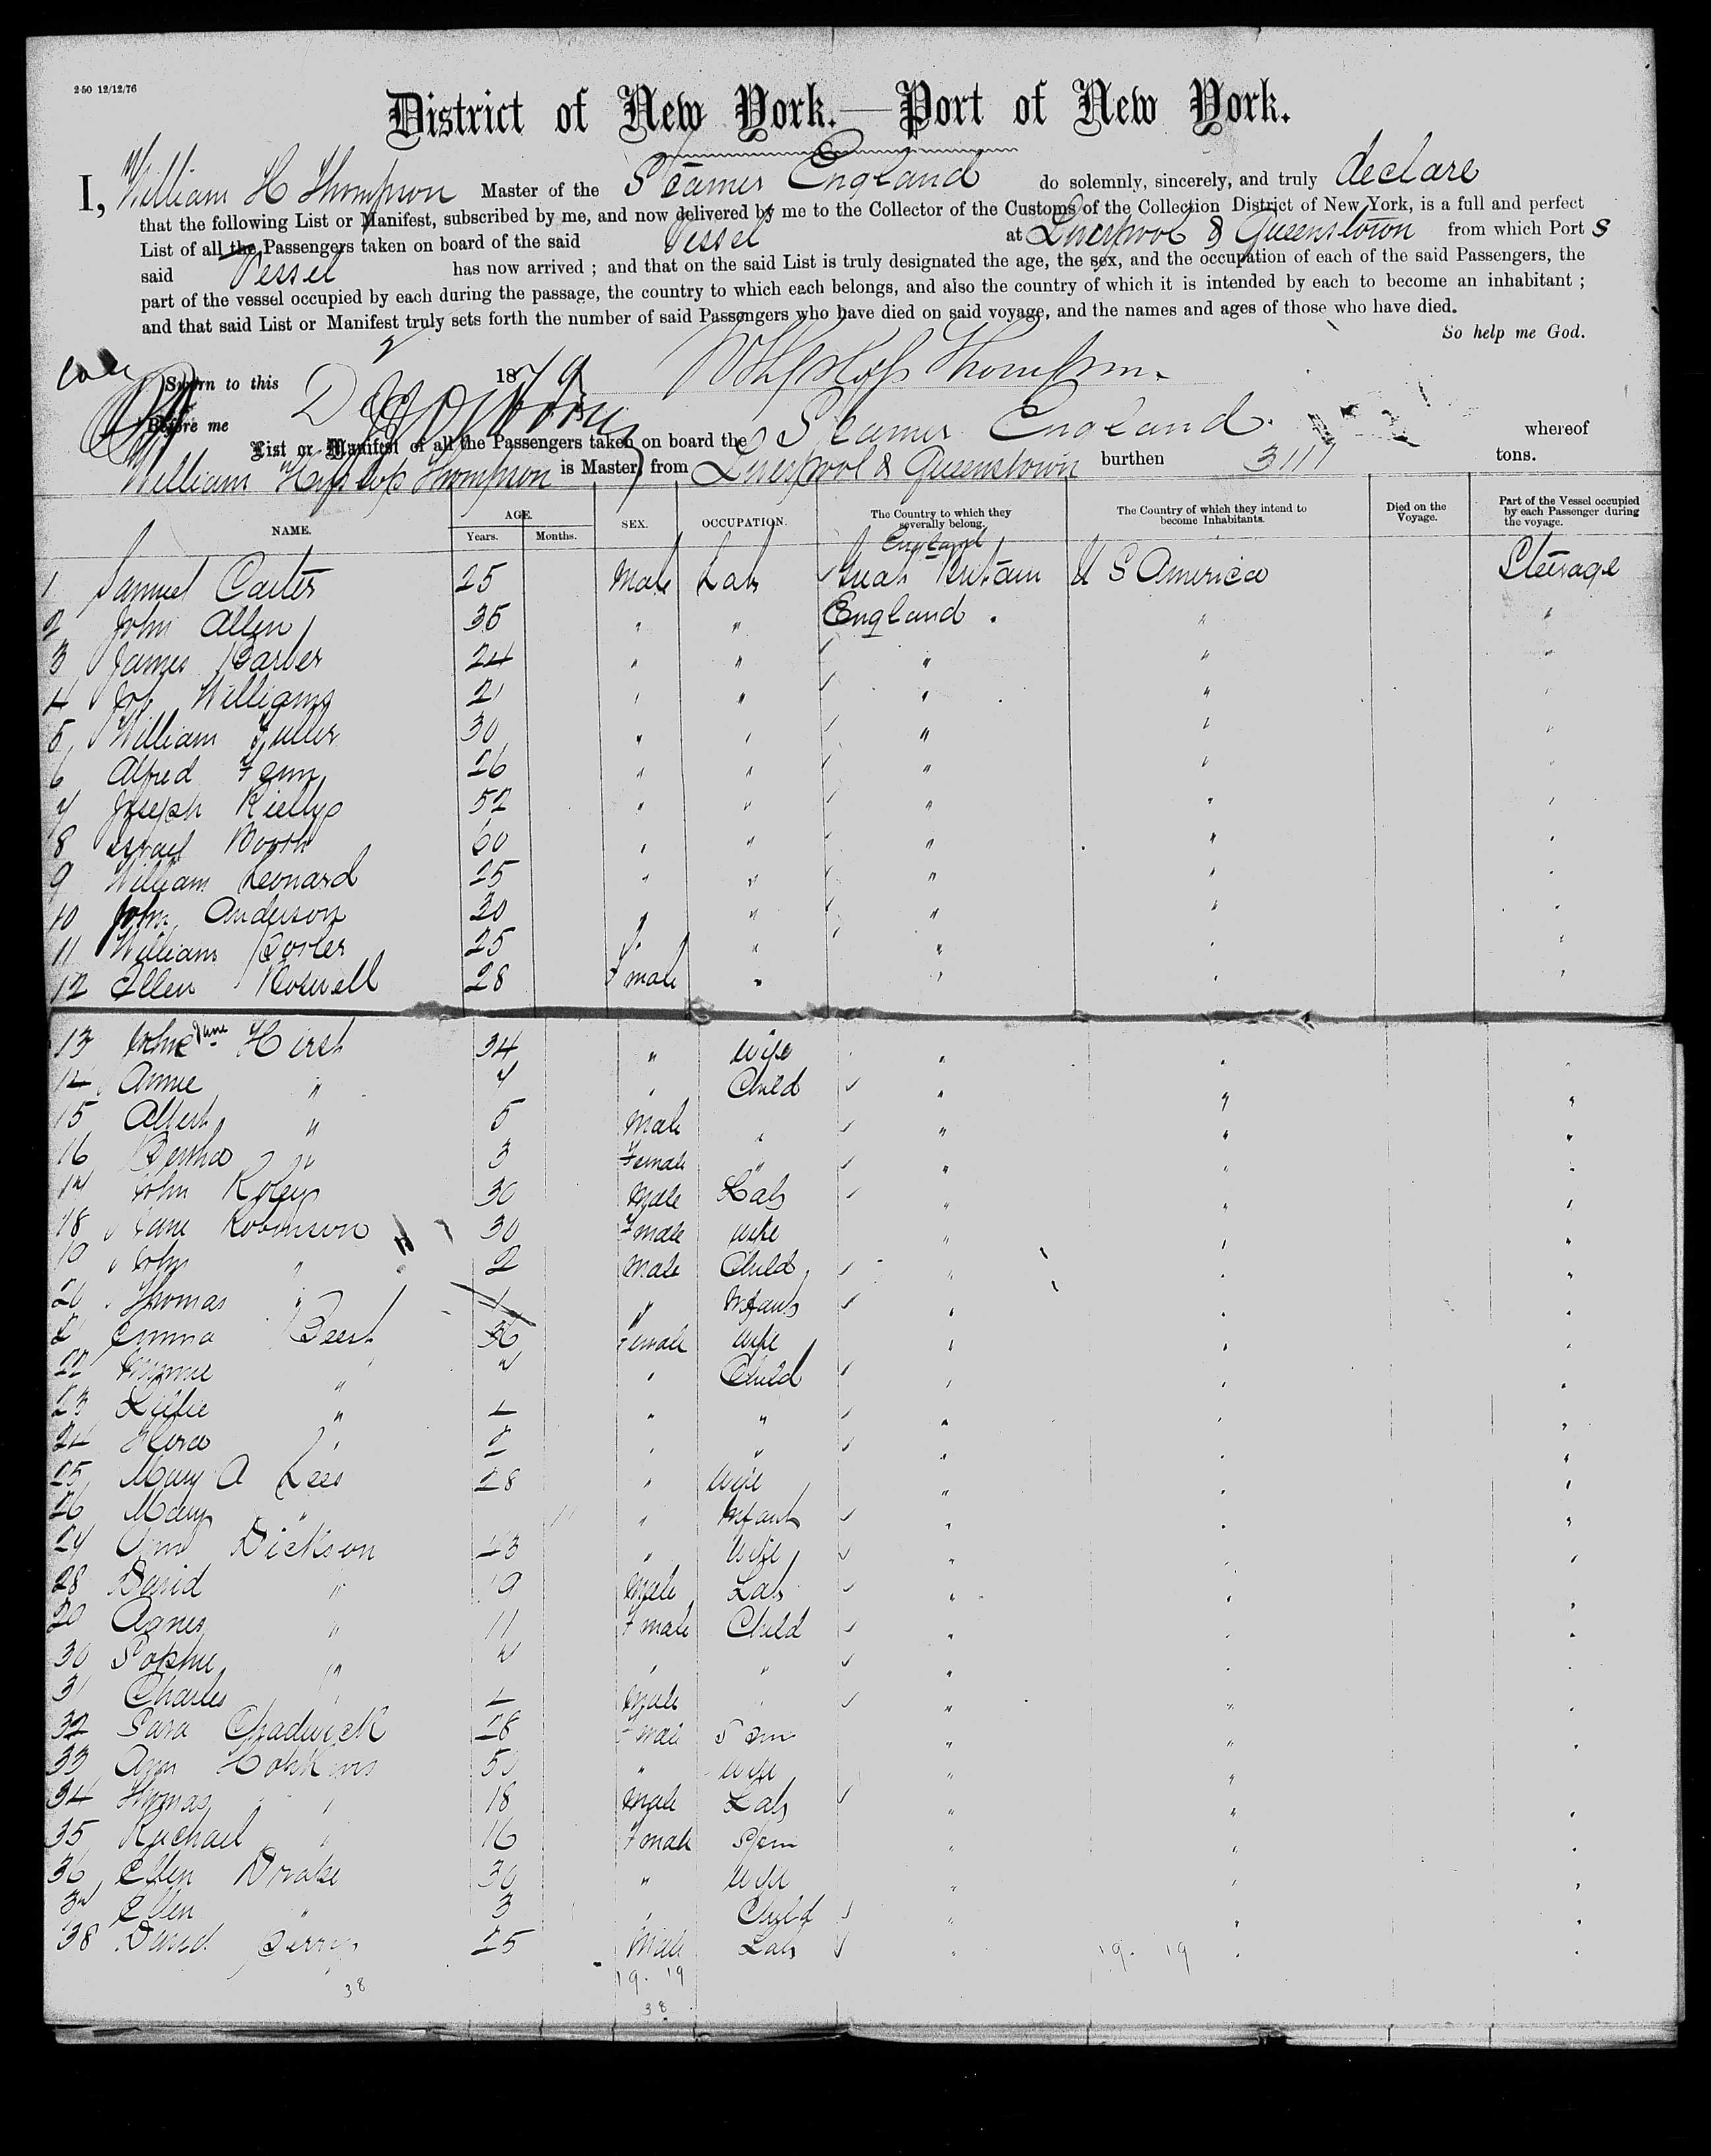 250 12/12/76
District of New York.—Port of New York.
I, William H Thompson Master of the Steamer England do solemnly, sincerely, and truly declare
that the following List or Manifest, subscribed by me, and now delivered by me to the Collector of the Customs of the Collection District of New York, is a full and perfect
List of all the Passengers taken on board of the said Vessel at Liverpool & Queenstown from which Port s
said Vessel has now arrived ; and that on the said List is truly designated the age, the sex, and the occupation of each of the said Passengers, the
part of the vessel occupied by each during the passage, the country to which each belongs, and also the country of which it is intended by each to become an inhabitant ;
and that said List or Manifest truly sets forth the number of said Passengers who have died on said voyage, and the names and ages of those who have died.
So help me God.
Sworn to this 2 1879 Thompson
Before me
List or Manifest of all the Passengers taken on board the Steamer England. whereof
William Hyslop Thompson is Master, from Liverpool & Queenstown burthen 3117 tons.
NAME. AGE. Years. Months. SEX. OCCUPATION. The Country to which they severally belong. The Country of which they intend to become Inhabitants. Died on the Voyage. Part of the Vessel occupied by each Passenger during the voyage.
England
1 Samuel Carter 25 Male Lab Great Britain U S America Steerage
2 John Allen 35 " " England . " "
3 James Barber 24 " " " " "
4 Jos Williams 21 " " " " "
5 William Fuller 30 " " " " "
6 Alfred 26 " " " " "
7 Joseph Rielly 52 " " " " "
8 Israel Booth 60 " " " " "
9 William Leonard 25 " " " " "
10 John Anderson 20 " " " " "
11 William 25 " " " " "
12 Ellen 28 Female " " " "
13 Jane Hirst 34 " Wife " " "
14 Annie " 7 " Child " " "
15 Albert " 5 Male " " " "
16 Bertha " 3 Female " " " "
17 John 30 Male Lab " " "
18 Jane Robinson 30 Female Wife " " "
19 John " 2 Male Child " " "
20 Thomas " 1 " Infant " " "
21 Emma Best 36 Female Wife " " "
22 Minnie " 7 " Child " " "
23 Lillie " 4 " " " " "
24 Flora " 2 " " " " "
25 Mary A Lees 28 " Wife " " "
26 Mary " 11 " Infant " " "
27 Ann Dickson 43 " Wife " " "
28 David " 19 Male Lab " " "
29 Agnes " 11 Female Child " " "
30 Sophie " 7 " " " " "
31 Charles " 4 Male " " " "
32 Sara Chadwick 28 Female Spin " " "
33 Ann Hopkins 50 " Wife " " "
34 Thomas " 18 Male Lab " " "
35 Rachael " 16 Female Spin " " "
36 Ellen Drake 30 " Wife " " "
37 Ellen " 3 " Child " " "
38 David Berry 25 Male Lab " 19. 19 " "
38 19. 19
38